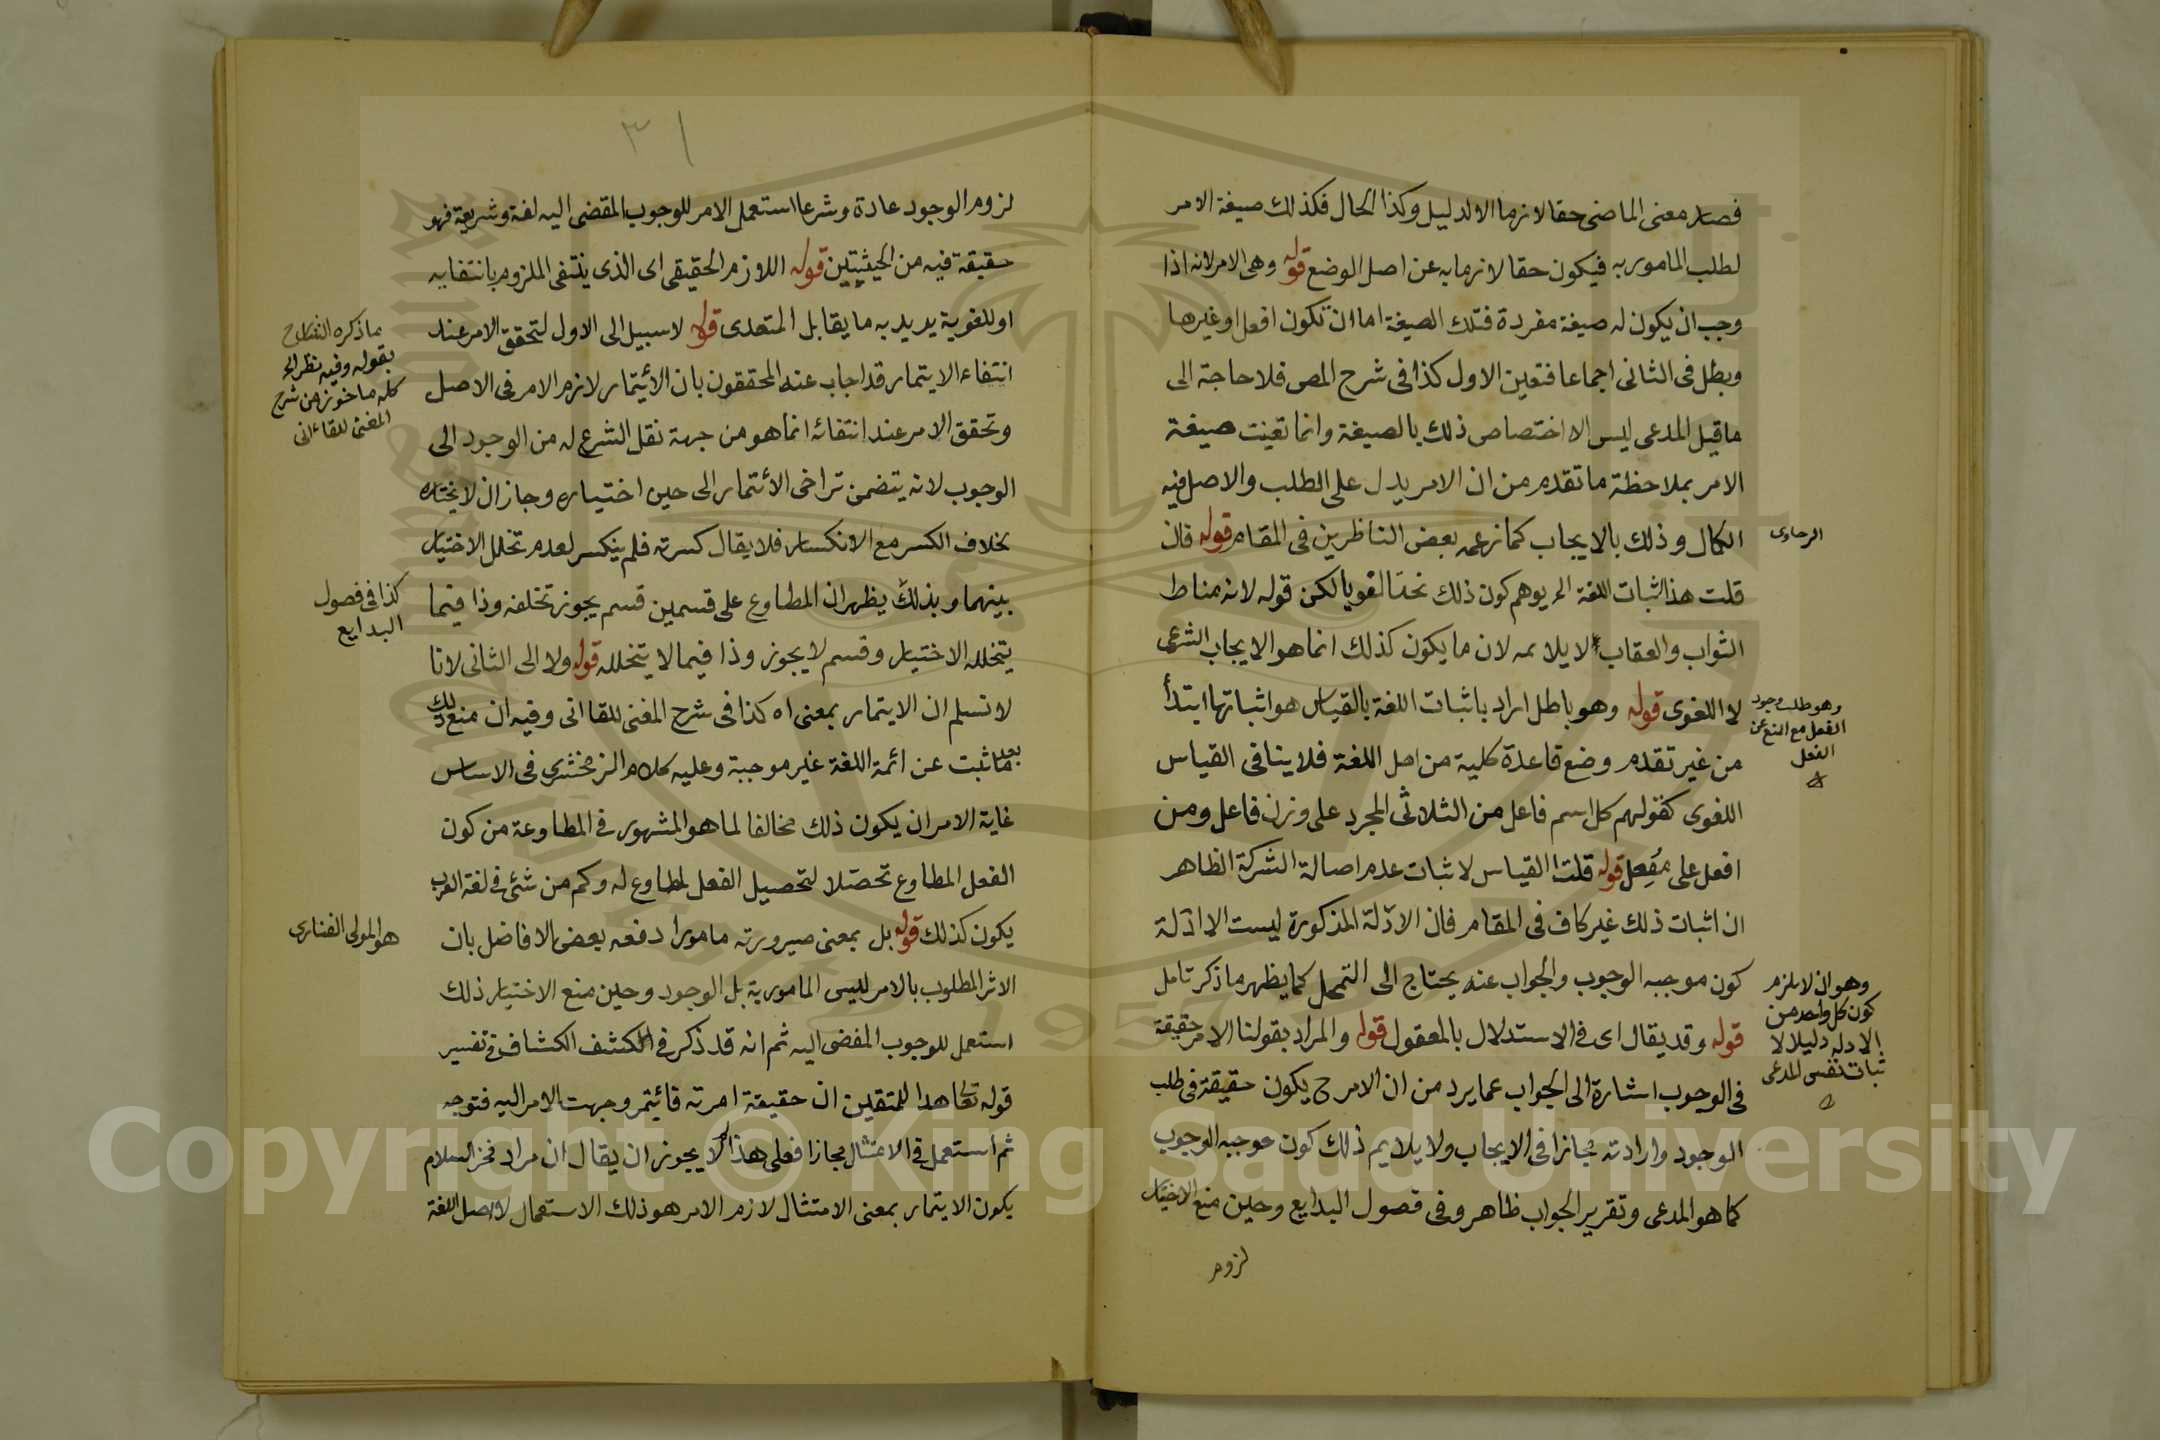 فصار معنى الماضى حقا لازما الا لدليل وكذا الحال فكذلك صيغة الامر
لطلب المامور به فيكون حقا لازما به عن اصل الوضع قوله وهى الامر لانه اذا
وجب ان يكون له صيغة مفردة فتلك الصيغة اما ان تكون افعل او غيرها
وبطل فى الثانى اجماعا فتعين الاول كذا فى شرح المص فلا حاجة الى
ما قيل المدعى ليس الا اختصاص ذلك بالصيغة وانما تعينت صيغة
الامر بملاحظة ما تقدم من ان الامر يدل على الطلب والاصل فيه
الكمال وذلك بالايجاب كما زعمه بعض الناظرين فى المقام قوله فان
الرهاوى
قلت هذا اثبات اللغة الخ يوهم كون ذلك نحتا لغويا لكن قوله لانه مناط
الثواب والعقاب لا يلايمه لان ما يكون كذلك انما هو الايجاب الشرعى
لا اللغوى قوله وهو باطل اراد باثبات اللغة بالقياس هو اثباتها ابتدأ
وهو طلب وجود
الفعل مع المنع عن
الفعل
من غير تقدم وضع قاعدة كلية من اهل اللغة فلا ينافى القياس
اللغوى كقولهم كل اسم فاعل من الثلاثى المجرد على وزن فاعل ومن
افعل على مُفعِل قوله قلت القياس لاثبات عدم اصالة الشركة الظاهر
ان اثبات ذلك غير كاف فى المقام فان الادلة المذكورة ليست الا ادلة
كون موجبه الوجوب والجواب عنه يحتاج الى التمحل كما يظهر ما ذكر تامل
وهو ان لا يلزم
كون كل واحد من
الادلة دليلا لا
ثبات نفس المدعى
قوله وقد يقال اى فى الاستدلال بالمعقول قوله والمراد بقولنا الامر حقيقة
فى الوجوب اشارة الى الجواب عما يرد من ان الامر ح يكون حقيقة فى طلب
الوجود وارادته مجازا فى الايجاب ولا يلايم ذلك كون موجبه الوجوب
كما هو المدعى وتقرير الجواب ظاهر وفى فصول البدايع وحين منع الاختيار
لزوم
٣١
لزوم الوجود عادة وشرعا استعمل الامر للوجوب المقضى اليه لغة وشريعة فهو
حقيقة فيه من الحيثيتين قوله اللازم الحقيقى اى الذى ينتفى الملزوم بانتفايه
او للغوية يريد به ما يقابل المتعدى قوله لا سبيل الى الاول لتحقق الامر عند
ما ذكره الشارح
بقوله وفيه نظر الخ
كله ماخوذ من شرح
المغنى للقاءانى
انتفاء الايتمار قد اجاب عنه المحققون بان الائتمار لازم الامر فى الاصل
وتحقق الامر عند انتفائه انما هو من جهة نقل الشرع له من الوجود الى
الوجوب لانه يتضمن تراخى الائتمار الى حين اختياره وجاز ان لا يختاره
بخلاف الكسر مع الانكسار فلا يقال كسرته فلم ينكسر لعدم تخلل الاختيار
بينهما وبذلك يظهر ان المطاوع على قسمين قسم يجوز تخلفه وذا فيما
كذا فى فصول
البدايع
يتخلله الاختيار وقسم لا يجوز وذا فيما لا يتخلله قوله ولا الى الثانى لانا
لا نسلم ان الايتمار بمعنى اه كذا فى شرح المغنى للقاانى وفيه ان منع ذلك
بعد ما ثبت عن ائمة اللغة غير موجبة وعليه كلام الزمخشرى فى الاساس
غاية الامر ان يكون ذلك مخالفا لما هو المشهور فى المطاوعة من كون
الفعل المطاوع تحصّلا لتحصيل الفعل لمطاوع له وكم من شئ فى لغة العرب
يكون كذلك قوله بل بمعنى صيرورته مامورا دفعه بعض الافاضل بان
هو المولى الفنارى
الاثر المطلوب بالامر ليس المامورية بل الوجود وحين منع الاختيار ذلك
استعمل للوجوب المفضى اليه ثم انه قد ذكر فى الكشف الكشاف فى تفسير
قوله تعا هدا للمتقين ان حقيقة امرته فائيتمر وجهت الامر اليه فتوجه
ثم استعمل فى الامتثال مجازا فعلى هذا لا يجوز ان يقال ان مراد فخر السلام
يكون الايتمار بمعنى الامتثال لازم الامر هو ذلك الاستعمال لا اصل اللغة
Copyright © King Saud University
1957